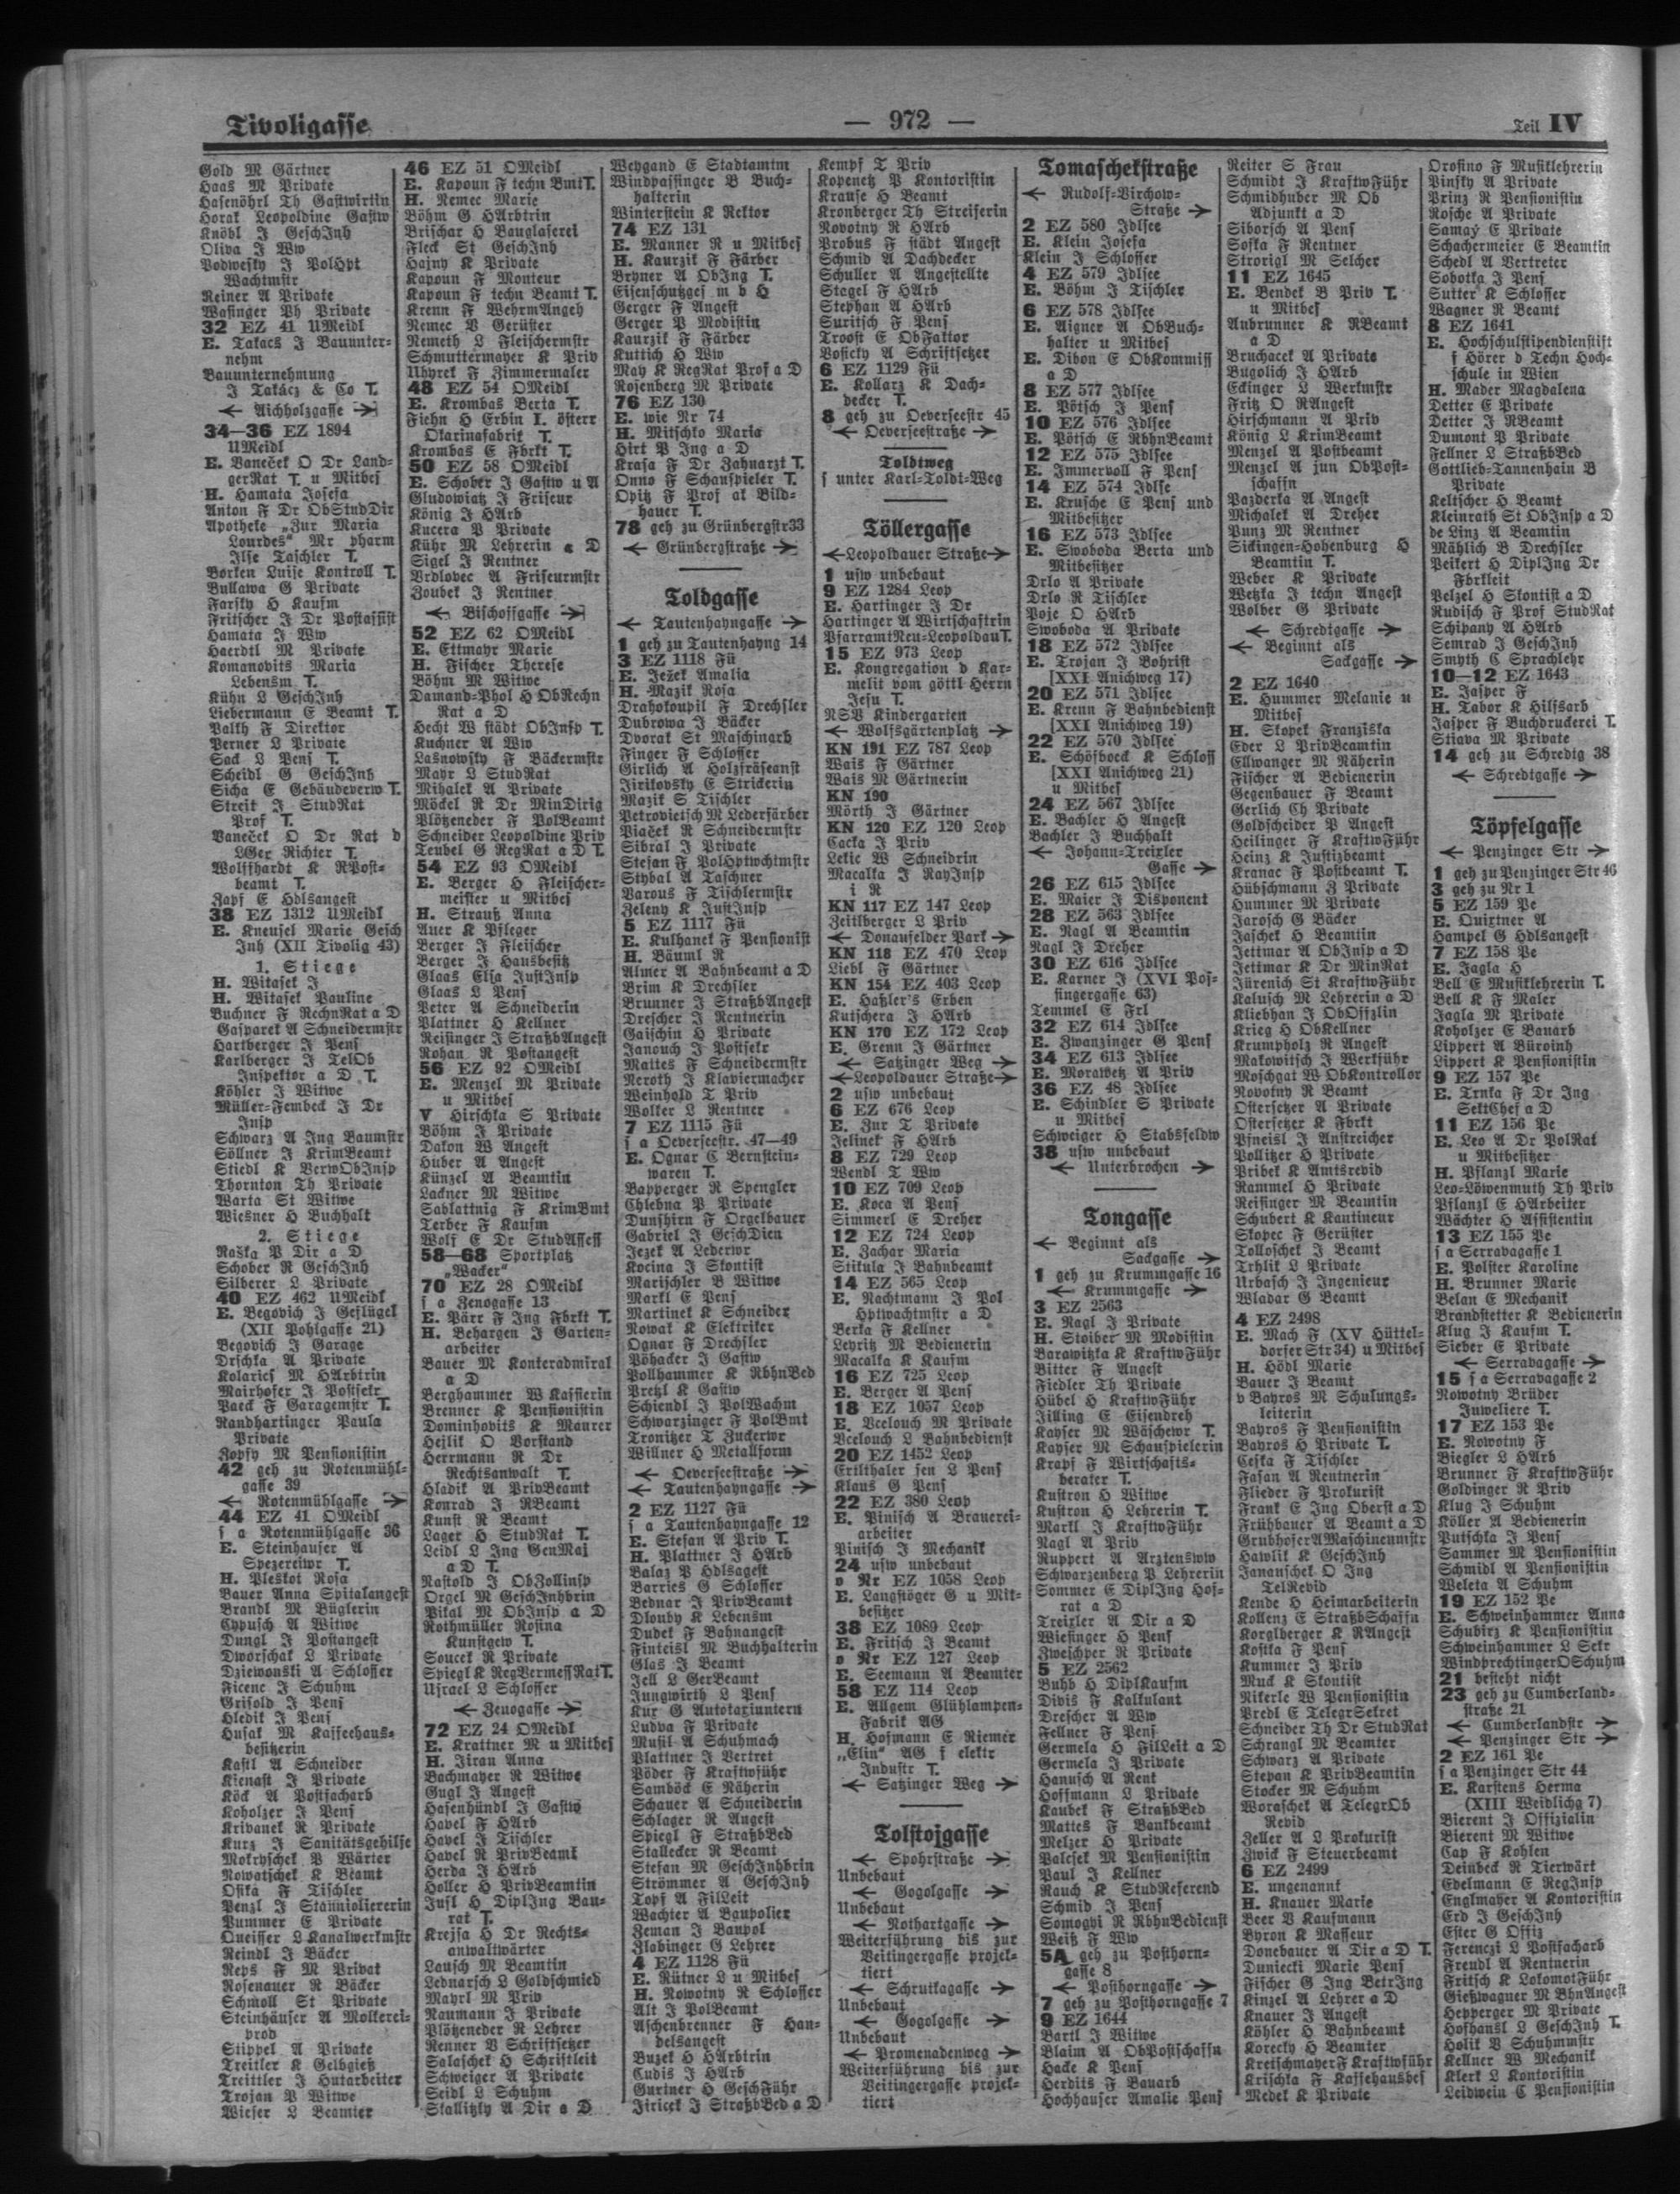 Tivoligasse
— 972 —
Teil IV
Gold M Gärtner
Haas M Private
Hasenöhrl Th Gastwirtin
Horak Leopoldine Gastw
Knöbl J GeschInh
Oliva J Ww
Podwesky J PolHpt
Wachtmstr
Reiner A Private
Wasinger Ph Private
32 EZ 41 UMeidl
E. Takacs J Bauunter-
nehm
Bauunternehmung
J Takácz & Co T.
← Aichholzgasse →
34—36 EZ 1894
UMeidl
E. Vaneček O Dr Land-
gerRat T. u Mitbes
H. Hamata Josefa
Anton F Dr ObStudDir
Apotheke „Zur Maria
Lourdes“ Mr pharm
Ilse Taschler T.
Borken Luise Kontroll T.
Bullawa G Private
Farsky H Kaufm
Fritscher J Dr Postassist
Hamata J Ww
Haerdtl M Private
Komanovits Maria
Lebensm T.
Kühn L GeschInh
Liebermann E Beamt T.
Palth F Direktor
Perner L Private
Sack L Pens T.
Scheidl G GeschInh
Sicha E Gebäudeverw T.
Streit J StudRat
Prof T.
Vaneček O Dr Rat d
LGer Richter T.
Wolfhardt K RPost-
beamt T.
Zapf E Hdlsangest
38 EZ 1312 UMeidl
E. Kneusel Marie Gesch
Inh (XII Tivolig 43)
1. Stiege
H. Witasek J
H. Witasek Pauline
Buchner F RechnRat a D
Gasparek A Schneidermstr
Hartberger J Pens
Karlberger J TelOb
Inspektor a D T.
Köhler J Witwe
Müller-Fembeck J Dr
Insp
Schwarz A Ing Baumstr
Söllner J KrimBeamt
Stiedl K VerwObInsp
Thornton Th Private
Warta St Witwe
Wiesner H Buchhalt
2. Stiege
Raška P Dir a D
Schober R GeschInh
Silberer L Private
40 EZ 462 UMeidl
E. Begovich J Geflügel
(XII Pohlgasse 21)
Begovich J Garage
Drschka A Private
Kolarics M HArbtrin
Mairhofer J Postsekr
Paeck F Garagemstr T.
Randhartinger Paula
Private
Zopfy M Pensionistin
42 geh zu Rotenmühl-
gasse 39
← Rotenmühlgasse →
44 EZ 41 OMeidl
s a Rotenmühlgasse 36
E. Steinhauser A
Spezereiwr T.
H. Pleskot Rosa
Bauer Anna Spitalangest
Brandl M Büglerin
Cypusch A Witwe
Dungl J Postangest
Dworschak L Private
Dziewonski A Schlosser
Ficenc J Schuhm
Grifold J Pens
Hledik J Pens
Husak M Kaffeehaus-
besitzerin
Kastl A Schneider
Kienast J Private
Köck A Postfacharb
Koholzer J Pens
Krivanek R Private
Kurz J Sanitätsgehilfe
Mokryschek P Wärter
Nowatschek K Beamt
Osika F Tischler
Penzl J Stanniolierer in
Pummer E Private
Queisser L Kanalwerkmstr
Reindl J Bäcker
Reps F M Privat
Rosenauer R Bäcker
Schmoll St Private
Steinhäuser A Molkerei-
prod
Stippel A Private
Treitler K Gelbgieß
Treittler J Hutarbeiter
Trojan P Witwe
Wieser L Beamter
46 EZ 51 OMeidl
E. Kapoun F techn BmtT.
H. Nemec Marie
Böhm G HArbtrin
Brischar H Bauglaserei
Fleck St GeschInh
Hajny K Private
Kapoun F Monteur
Kapoun F techn Beamt T.
Krenn F WehrmAngeh
Nemec V Gerüster
Nemeth L Fleischermstr
Schmuttermayer K Priv
Uhyrek F Zimmermaler
48 EZ 54 OMeidl
E. Krombas Berta T.
Fiehn H Erbin I. österr
Okarinafabrik T.
Krombas E Fbrkt T.
50 EZ 58 OMeidl
E. Schober J Gastw u A
Gludowiatz J Friseur
König J HArb
Kucera P Private
Kühr M Lehrerin a D
Sigel J Rentner
Vrdlovec A Friseurmstr
Zoubek J Rentner
← Bischoffgasse →
52 EZ 62 OMeidl
E. Ettmayr Marie
H. Fischer Therese
Böhm M Witwe
Damand-Phol H ObRechn
Rat a D
Hecht W städt ObInsp T.
Kuchner A Ww
Lasnowsky F Bäckermstr
Mayr L StudRat
Mihalek A Private
Möckel R Dr MinDirig
Plötzeneder F PolBeamt
Schneider Leopoldine Priv
Teubel G RegRat a D T.
54 EZ 93 OMeidl
E. Berger H Fleischer-
meister u Mitbes
H. Strauß Anna
Auer K Pfleger
Berger J Fleischer
Berger J Hausbesitz
Glaas Elsa JustInsp
Glaas L Pens
Peter A Schneiderin
Plattner H Kellner
Reisinger J StraßbAngest
Rohan R Postangest
56 EZ 92 OMeidl
E. Menzel M Private
u Mitbes
V Hirschka S Private
Böhm J Private
Dakon W Angest
Huber A Angest
Künzel A Beamtin
Lackner M Witwe
Sablattnig F KrimBmt
Terber F Kaufm
Wolf E Dr StudAssess
58—68 Sportplatz
„Wacker“
70 EZ 28 OMeidl
s a Zenogasse 13
E. Pärr F Ing Fbrkt T.
H. Behargen J Garten-
arbeiter
Bauer M Konteradmiral
a D
Berghammer W Kassierin
Brenner K Pensionistin
Dominhovits K Maurer
Hejlik O Vorstand
Herrmann R Dr
Rechtsanwalt T.
Hladik A PrivBeamt
Konrad J RBeamt
Kunst R Beamt
Lager H StudRat T.
Leidl L Ing GenMaj
a D T.
Nastold J ObZollinsp
Orgel M GeschInhbrin
Pikal M ObInsp a D
Rothmüller Rosina
Kunstgew T.
Soucek R Private
Spiegl K RegVermessRat T.
Usrael L Schlosser
← Zenogasse →
72 EZ 24 OMeidl
E. Krattner M u Mitbes
H. Jiran Anna
Bachmayer R Witwe
Gugl J Angest
Hasenhündl J Gastw
Havel F HArb
Havel J Tischler
Havel R PrivBeamt
Herda J HArb
Holler H PrivBeamtin
Jusl H DiplIng Bau-
rat T.
Krejsa H Dr Rechts-
anwaltwärter
Lausch M Beamtin
Lednarsch L Goldschmied
Mayrl M Priv
Naumann J Private
Plötzeneder R Lehrer
Renner V Schriftsetzer
Salaschek H Schriftleit
Schweiger A Private
Seidl L Schuhm
Stallitzky A Dir a D
Weygand E Stadtamtm
Windpassinger B Buch-
halterin
Winterstein K Rektor
74 EZ 131
E. Manner R u Mitbes
H. Kaurzik F Färber
Bryner A ObIng T.
Eisenschutzges m b H
Gerger F Angest
Gerger P Modistin
Kaurzik F Färber
Kuttich H Ww
May K RegRat Prof a D
Rosenberg M Private
76 EZ 130
E. wie Nr 74
H. Mitschko Maria
Hirt P Ing a D
Krasa F Dr Zahnarzt T.
Onno F Schauspieler T.
Opitz F Prof ak Bild-
hauer T.
78 geh zu Grünbergstr33
← Grünbergstraße →
Toldgasse
← Tautenhayngasse →
1 geh zu Tautenhayng 14
3 EZ 1118 Fü
E. Ježek Amalia
H. Mazik Rosa
Drahokoupil F Drechsler
Dubrowa J Bäcker
Dvorak St Maschinarb
Finger F Schlosser
Girlich A Holzfräseanst
Jirikovsky E Strickerin
Mazik S Tischler
Petrovietsch M Lederfärber
Piaček R Schneidermstr
Sibral J Private
Stefan F PolHptwchtmstr
Stybal A Taschner
Varous F Tischlermstr
Zeleny K JustInsp
5 EZ 1117 Fü
E. Kulhanek F Pensionist
H. Bäuml R
Almer A Bahnbeamt a D
Brim K Drechsler
Brunner J StraßbAngest
Drescher J Rentnerin
Gaischin H Private
Janouch J Postsekr
Mattes F Schneidermstr
Neroth J Klaviermacher
Weinhold T Priv
Wolker L Rentner
7 EZ 1115 Fü
s a Oeverseestr. 47—49
E. Ognar C Bernstein-
waren T.
Bapperger R Spengler
Chlebna P Private
Dunshirn F Orgelbauer
Gabriel J GeschDien
Jezek A Lederwr
Kocina J Kontist
Marischler B Witwe
Markl E Pens
Martinek K Schneider
Nowak K Elektriker
Ognar F Drechsler
Pöhacker J Gastw
Pollhammer K RbhnBed
Pretzl K Gastw
Schiendl J PolWachm
Schwarzinger F PolBmt
Tronitzer T Zuckerwr
Willner H Metallform
← Oeverseestraße →
← Tautenhayngasse →
2 EZ 1127 Fü
s a Tautenhayngasse 12
E. Stefan A Priv T.
H. Plattner J HArb
Balaz P Hdlsagest
Barries G Schlosser
Bednar J PrivBeamt
Dlouhy K Lebensm
Dudek F Bahnangest
Finteisl M Buchhalterin
Glas J Beamt
Jell L GerBeamt
Jungwirth L Pens
Kux G Autotaxiuntern
Ludva F Private
Musil A Schuhmach
Plattner J Vertret
Pöder F Kraftwführ
Samböck E Näherin
Schauer A Schneiderin
Schlager R Angest
Spiegl F StraßbBed
Stallecker R Beamt
Stefan M GeschInhbrin
Strömmer A GeschInh
Topf A FilLeit
Wachter A Baupolier
Zeman J Baupol
Zlabinger G Lehrer
4 EZ 1128 Fü
E. Rütner L u Mitbes
H. Nowotny R Schlosser
Alt J PolBeamt
Aschenbrenner F Han-
delsangest
Buzek H HArbtrin
Cudis J HArb
Gurtner H GeschFühr
Jiricek J StraßbBed a D
Kempf T Priv
Kopenetz P Kontoristin
Krause H Beamt
Kronberger Th Streiferin
Novotny R HArb
Probus F städt Angest
Schmid A Dachdecker
Schuller A Angestellte
Stagel F HArb
Stephan A HArb
Suritsch F Pens
Troost E ObFaktor
Vosicky A Schriftsetzer
6 EZ 1129 Fü
E. Kollarz K Dach-
decker T.
8 geh zu Oeverseestr 45
← Oeverseestraße →
Toldtweg
s unter Karl-Toldt-Weg
Töllergasse
← Leopoldauer Straße →
1 usw unbebaut
9 EZ 1284 Leop
E. Hartinger J Dr
Hartinger A Wirtschaftrin
PfarramtNeu-Leopoldau T.
15 EZ 973 Leop
E. Kongregation d Kar-
melit vom göttl Herrn
Jesu T.
NSV Kindergarten
← Wolfsgärtenplatz →
KN 191 EZ 787 Leop
Wais F Gärtner
Wais M Gärtnerin
KN 190
Mörth J Gärtner
KN 120 EZ 120 Leop
Cacka J Priv
Lekie W Schneidrin
Macalka J RayInsp
i R
KN 117 EZ 147 Leop
Zeitlberger L Priv
← Donaufelder Park →
KN 118 EZ 470 Leop
Liebl F Gärtner
KN 154 EZ 403 Leop
E. Haßler's Erben
Kutschera J HArb
KN 170 EZ 172 Leop
E. Grenn J Gärtner
← Satzinger Weg →
← Leopoldauer Straße →
2 usw unbebaut
6 EZ 676 Leop
E. Zur T Private
Jelinek F HArb
8 EZ 729 Leop
Wendl T Ww
10 EZ 709 Leop
E. Koca A Pens
Simmerl E Dreher
12 EZ 724 Leop
E. Zachar Maria
Stikula J Bahnbeamt
14 EZ 565 Leop
E. Nachtmann J Pol
Hptwachtmstr a D
Berka F Kellner
Leyritz M Bedienerin
Macalka K Kaufm
16 EZ 725 Leop
E. Berger A Pens
18 EZ 1057 Leop
E. Vcelouch M Private
Vcelouch L Bahnbedienst
20 EZ 1452 Leop
Erilthaler sen L Pens
Klaus G Pens
22 EZ 380 Leop
E. Pinisch A Brauerei-
arbeiter
Pinisch J Mechanik
24 usw unbebaut
o Nr EZ 1058 Leop
E. Langstöger G u Mit-
besitzer
38 EZ 1089 Leop
E. Fritsch J Beamt
o Nr EZ 127 Leop
E. Seemann A Beamter
58 EZ 114 Leop
E. Allgem Glühlampen-
Fabrik AG
H. Hofmann E Riemer
„Elin“ AG f elektr
Industr T.
← Satzinger Weg →
Tolstojgasse
← Spohrstraße →
Unbebaut
← Gogolgasse →
Unbebaut
← Nothartgasse →
Weiterführung bis zur
Veitingergasse projek-
tiert
← Schrutkagasse →
Unbebaut
← Gogolgasse →
Unbebaut
← Promenadenweg →
Weiterführung bis zur
Veitingergasse projek-
tiert
Tomaschekstraße
← Rudolf-Virchow-
Straße →
2 EZ 580 Jdlsee
E. Klein Josefa
Klein J Schlosser
4 EZ 579 Jdlsee
E. Böhm J Tischler
6 EZ 578 Jdlsee
E. Aigner A ObBuch-
halter u Mitbes
E. Dibon E ObKommiss
a D
8 EZ 577 Jdlsee
E. Pötsch J Pens
10 EZ 576 Jdlsee
E. Pötsch E RbhnBeamt
12 EZ 575 Jdlsee
E. Immervoll F Pens
14 EZ 574 Jdlse
E. Krusche E Pens und
Mitbesitzer
16 EZ 573 Jdlsee
E. Swoboda Berta und
Mitbesitzer
Drlo A Private
Drlo R Tischler
Poje O HArb
Swoboda A Private
18 EZ 572 Jdlsee
E. Trojan J Bohrist
[XXI Anichweg 17)
20 EZ 571 Jdlsee
E. Krenn F Bahnbedienst
[XXI Anichweg 19)
22 EZ 570 Jdlsee
E. Schöfboeck K Schloss
[XXI Anichweg 21)
u Mitbes
24 EZ 567 Jdlsee
E. Bachler H Angest
Bachler J Buchhalt
← Johann-Treixler
Gasse →
26 EZ 615 Jdlsee
E. Maier J Disponent
28 EZ 563 Jdlsee
E. Nagl A Beamtin
Nagl J Dreher
30 EZ 616 Jdlsee
E. Karner J (XVI Pos-
singergasse 63)
Temmel E Frl
32 EZ 614 Jdlsee
E. Zwanzinger G Pens
34 EZ 613 Jdlsee
E. Morawetz A Priv
36 EZ 48 Jdlsee
E. Schindler S Private
u Mitbes
Schweiger H Stabsfeldw
38 usw unbebaut
← Unterbrochen →
Tongasse
← Beginnt als
Sackgasse →
1 geh zu Krummgasse 16
← Krummgasse →
3 EZ 2563
E. Nagl J Private
H. Stoiber M Modistin
Barawitzka K KraftwFühr
Bitter F Angest
Fiedler Th Private
Hübel H KraftwFühr
Jilling E Eisendreh
Kayser M Wäschewr T.
Kayser M Schauspielerin
Krapf F Wirtschafts-
berater T.
Kustron H Witwe
Kustron H Lehrerin T.
Martl J KraftwFühr
Nagl A Priv
Ruppert A Arztenswtw
Schwarzenberg P Lehrerin
Sommer E DiplIng Hof-
rat a D
Treixler A Dir a D
Wiesinger H Pens
Zweschper R Private
5 EZ 2562
Buhb H DiplKaufm
Divis F Kalkulant
Drescher A Ww
Fellner F Pens
Germela H FilLeit a D
Germela J Private
Hanusch A Rent
Hoffmann L Private
Kaubek F StraßbBed
Mattes F Bankbeamt
Melzer H Private
Palesek M Pensionistin
Paul J Kellner
Rauch K StudReferend
Schmid J Pens
Somoghi R RbhnBedienst
Weiß F Ww
5A geh zu Posthorn-
gasse 8
← Posthorngasse →
7 geh zu Posthorngasse 7
9 EZ 1644
Bartl J Witwe
Blaim A ObPostschaffn
Hacke K Pens
Herdits F Bauarb
Hochhauser Amalie Pens
Reiter S Frau
Schmidt J KraftwFühr
Schmidhuber M Ob
Adjunkt a D
Siborsch A Pens
Soska F Rentner
Strorigl M Selcher
11 EZ 1645
E. Bendek B Priv T.
u Mitbes
Aubrunner K RBeamt
a D
Bruchacek A Private
Bugolich J HArb
Eckinger L Werkmstr
Fritz O RAngest
Hirschmann A Priv
König L KrimBeamt
Menzel A Postbeamt
Menzel A jun ObPost-
schaffn
Pazderka A Angest
Michalek A Dreher
Punz M Rentner
Sickingen-Hohenburg H
Beamtin T.
Weber K Private
Wetzka J techn Angest
Wolber G Private
← Schredtgasse →
← Beginnt als
Sackgasse →
2 EZ 1640
E. Hummer Melanie u
Mitbes
H. Skopek Franziska
Eder L PrivBeamtin
Ellwanger M Näherin
Fischer A Bedienerin
Gegenbauer F Beamt
Gerlich Ch Private
Goldscheider P Angest
Heilinger F KraftwFühr
Heinz K Justizbeamt
Kranac F Postbeamt T.
Hübschmann Z Private
Hummer M Private
Jarosch G Bäcker
Jaschek H Beamtin
Jettmar A ObInsp a D
Jettmar K Dr MinRat
Jürenich St KraftwFühr
Kalusch M Lehrerin a D
Kliebhan J ObOffizlin
Krieg H ObKellner
Krumpholz R Angest
Makowitsch J Werkführ
Moschgat W ObKontrollor
Novotny R Beamt
Ostersetzer A Private
Ostersetzer K Fbrkt
Pfneisl J Anstreicher
Pollitzer H Private
Pribek K Amtsrevid
Rammel H Private
Reisinger M Beamtin
Schubert K Kantineur
Skopec F Gerüster
Tolloschek J Beamt
Trhlik L Private
Urbasch J Ingenieur
Wladar G Beamt
4 EZ 2498
E. Mach F (XV Hüttel-
dorfer Str 34) u Mitbes
H. Hödl Marie
Bauer J Beamt
v Bayros M Schulungs-
leiterin
Bayros F Pensionistin
Bayros H Private T.
Ceska F Tischler
Fasan A Rentnerin
Flieder F Prokurist
Frank E Ing Oberst a D
Frühbauer A Beamt a D
GrubhoferAMaschinenmstr
Hawlik K GeschInh
Jananschek O Ing
TelRevid
Kende H Heimarbeiterin
Kollenz E StraßbSchaffn
Korglberger K RAngest
Kostka F Pens
Kummer J Priv
Muck K Kontist
Nikerle W Pensionistin
Predl E TelegrSekret
Schneider Th Dr StudRat
Schrangl M Beamter
Schwarz A Private
Stepan K PrivBeamtin
Stocker M Schuhm
Woraschek A TelegrOb
Revid
Zeller A L Prokurist
Zwick F Steuerbeamt
6 EZ 2499
E. ungenannt
H. Knauer Marie
Beer V Kaufmann
Byron K Masseur
Donebauer A Dir a D T.
Duniecki Marie Pens
Fischer G Ing BetrIng
Kinzel A Lehrer a D
Knauer J Angest
Köhler H Bahnbeamt
Korecky H Beamter
KretschmayerF Kraftwführ
Krischka F Kaffehausbes
Medek K Private
Orosino F Musiklehrerin
Pinsky A Private
Prinz R Pensionistin
Rosche A Private
Samay E Private
Schachermeier E Beamtin
Schedl A Vertreter
Sobotka J Pens
Sutter K Schlosser
Wagner R Beamt
8 EZ 1641
E. Hochschulstipendienstift
f Hörer d Techn Hoch-
schule in Wien
H. Mader Magdalena
Detter E Private
Detter J RBeamt
Dumont P Private
Fellner L StraßbBed
Gottlieb-Tannenhain B
Private
Keltscher H Beamt
Kleinrath St ObInsp a D
de Linz A Beamtin
Mählich B Drechsler
Peikert H DiplIng Dr
Fbrkleit
Pelzel H Kontist a D
Rudisch F Prof StudRat
Schipany A HArb
Semrad J GeschInh
Smyth C Sprachlehr
10—12 EZ 1643
E. Jasper F
H. Tabor K Hilfsarb
Jasper F Buchdruckerei T.
Stiava M Private
14 geh zu Schredtg 38
← Schredtgasse →
Töpfelgasse
← Penzinger Str →
1 geh zu Penzinger Str 46
3 geh zu Nr 1
5 EZ 159 Pe
E. Quixtner A
Hampel G Hdlsangest
7 EZ 158 Pe
E. Jagla H
Bell E Musiklehrerin T.
Bell K F Maler
Jagla M Private
Koholzer E Bauarb
Lippert A Büroinh
Lippert K Pensionistin
9 EZ 157 Pe
E. Trnka F Dr Ing
SektChef a D
11 EZ 156 Pe
E. Leo A Dr PolRat
u Mitbesitzer
H. Pflanzl Marie
Leo-Löwenmuth Th Priv
Pflanzl E HArbeiter
Wächter H Assistentin
13 EZ 155 Pe
s a Serravagasse 1
E. Polster Karoline
H. Brunner Marie
Belan E Mechanik
Brandstetter K Bedienerin
Klug J Kaufm T.
Sieber E Private
← Serravagasse →
15 s a Serravagasse 2
Nowotny Brüder
Juweliere T.
17 EZ 153 Pe
E. Nowotny F
Biegler L HArb
Brunner F KraftwFühr
Goldinger R Priv
Klug J Schuhm
Köller A Bedienerin
Putschka J Pens
Sammer M Pensionistin
Schmidl A Pensionistin
Weleta A Schuhm
19 EZ 152 Pe
E. Schweinhammer Anna
Schubirz K Pensionistin
Schweinhammer L Sekr
WindprechtingerOSchuhm
21 besteht nicht
23 geh zu Cumberland-
straße 21
← Cumberlandstr →
← Penzinger Str →
2 EZ 161 Pe
s a Penzinger Str 44
E. Karstens Herma
(XIII Weidlichg 7)
Bierent J Offizialin
Bierent M Witwe
Cap F Kohlen
Deinbeck R Tierwärt
Edelmann E RegInsp
Englmayer A Kontoristin
Erd J GeschInh
Ester G Offiz
Ferenczi L Postfacharb
Freudl A Rentnerin
Fritsch K LokomotFühr
Gießwagner M BhnAngest
Hepperger M Private
Hofhansl L GeschInh T.
Holik V Schuhmmstr
Kellner W Mechanik
Klerk L Kontoristin
Leidwein C Pensionistin